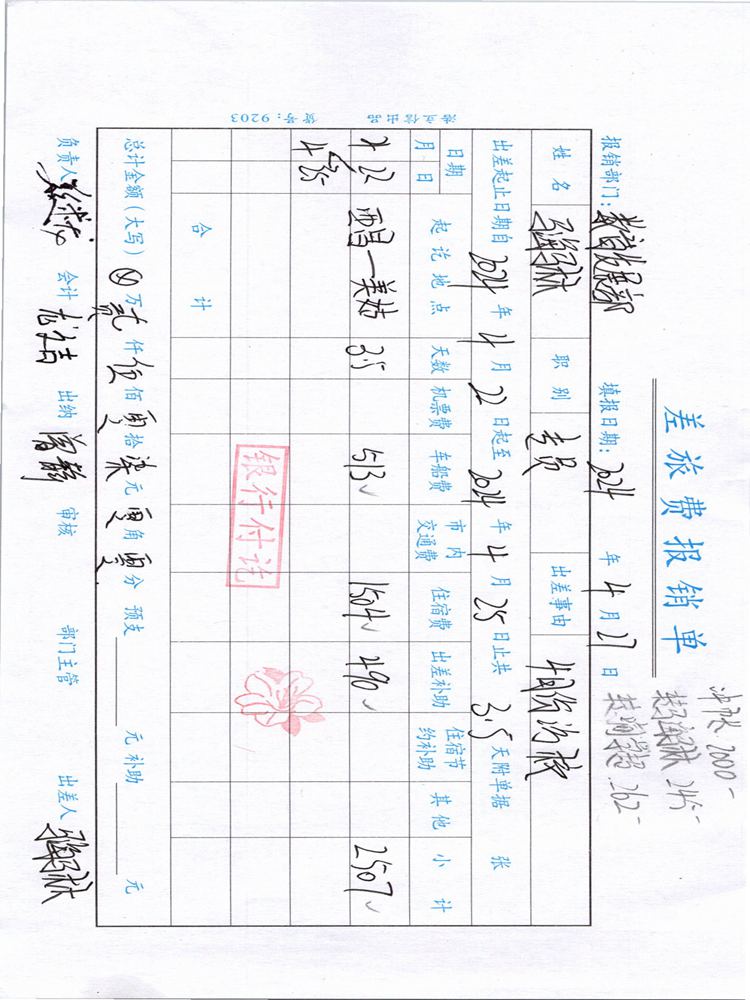 差旅费报销单
报销部门： 填报日期：2024 年 4 月 27 日
冲账 2000-
245-
262-
姓名 职别 专员 出差事由
出差起止日期自 2024 年 4 月 22 日起至 2024 年 4 月 25 日止共 3.5 天附单据 张
日期 起讫地点 天数 机票费 车船费 市内交通费 住宿费 出差补助 住宿节约补助 其他 小计
月 日
4 22 西昌—美姑 3.5 513 1504 490 2507
4 25
银行付讫
合计
总计金额（大写） 万 贰 仟 伍 佰 零 拾 柒 元 零 角 零 分 预支 元 补助 元
负责人 会计 出纳 曾静 审核 部门主管 出差人
浩立信出品 货号：9203